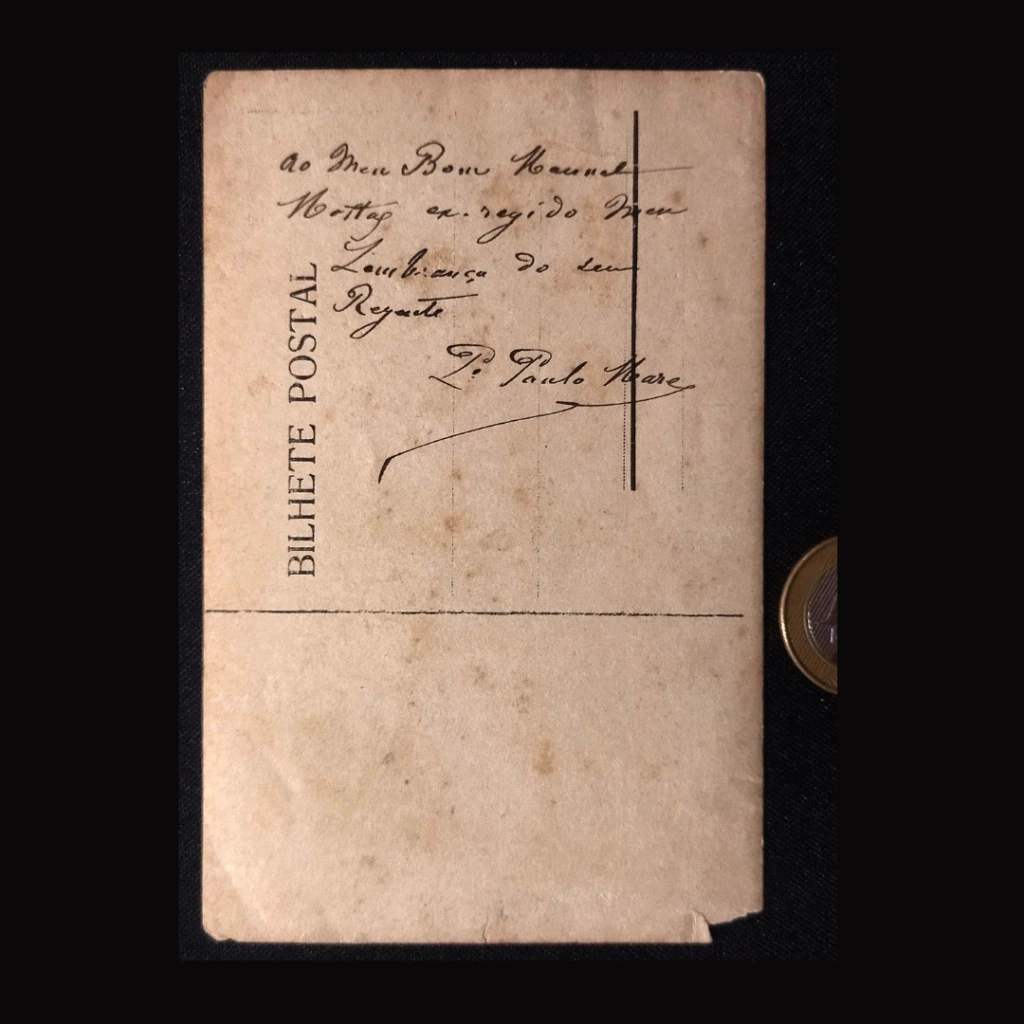 Ao Meu Bom Manuel
Mottag ex-regido Meu
Lembrança do seu
Regente
P.e Paulo
BILHETE POSTAL